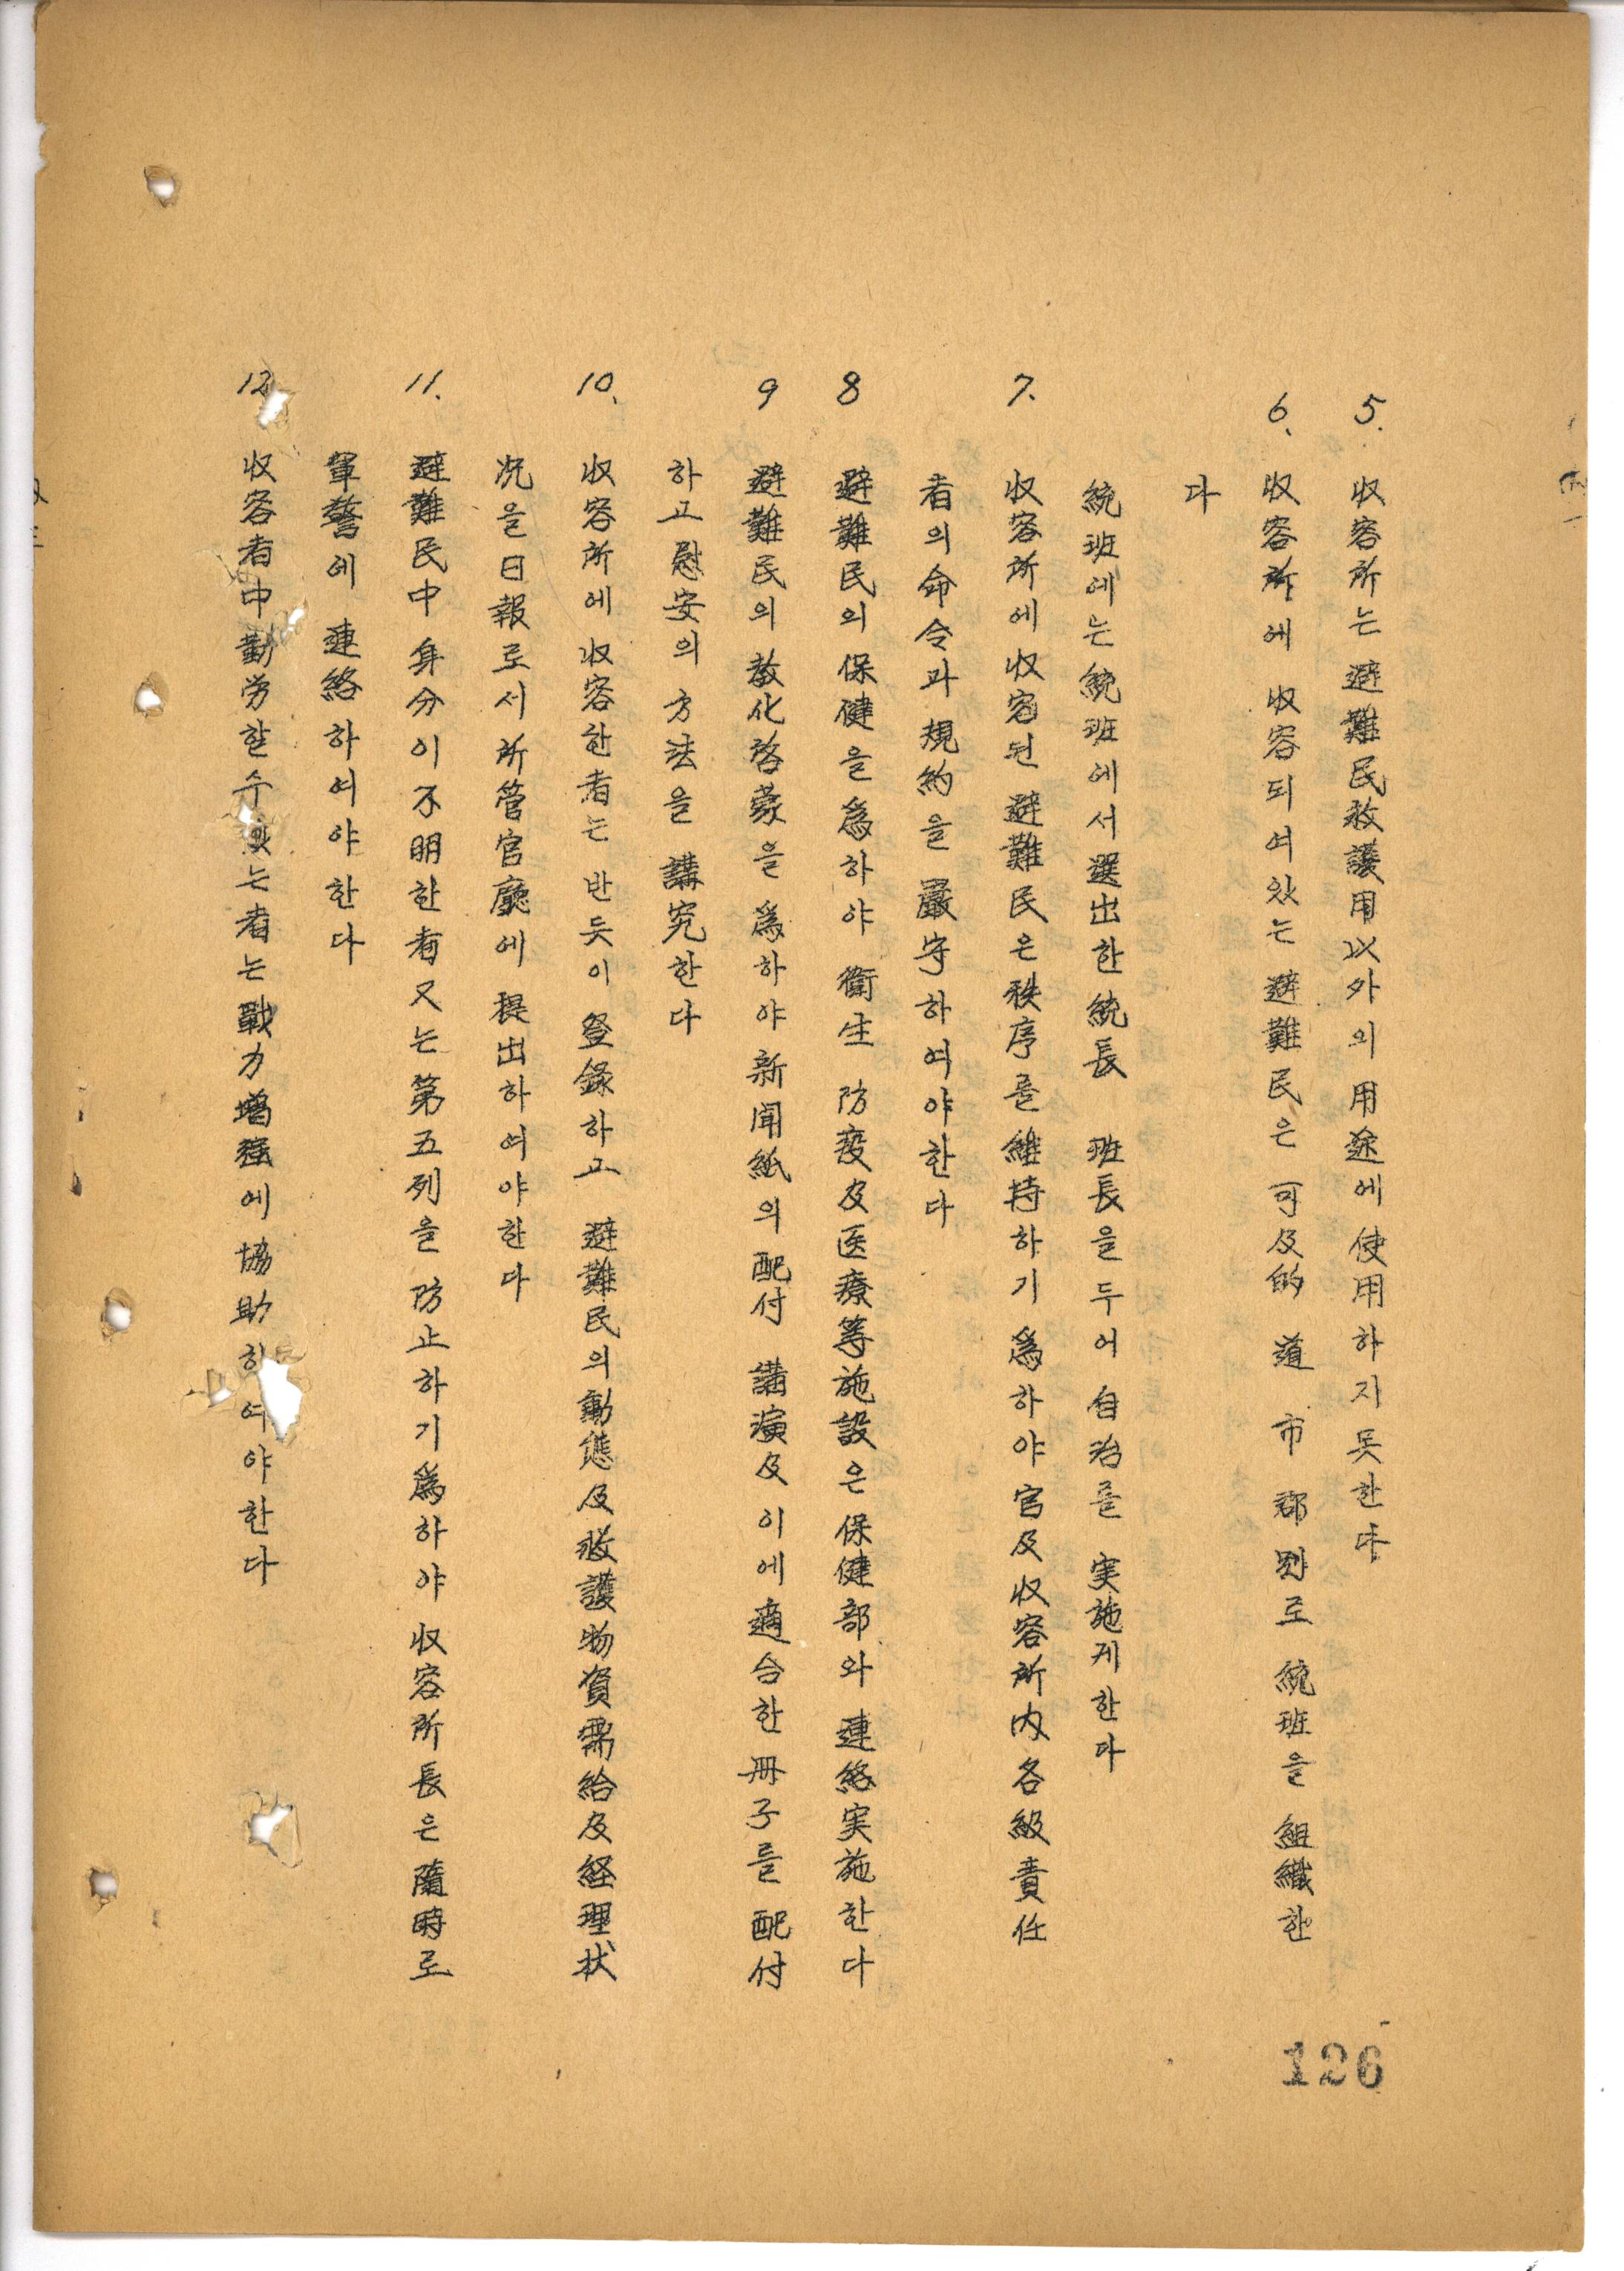 5. 收容所는 避難民救護用以外의 用途에 使用하지못한다
6. 收容所에 收容되여있는 避難民은 可及的 道 市 郡 別로 統班을 組織한
다
統班에는 統班에서 選出한 統長 班長을 두어 自治를 実施케한다
7. 收容所에 收容된 避難民은 秩序를 維持하기 爲하야 官及 收容所內 各級 責任
者의 命令과 規約을 嚴守하여야한다
8 避難民의 保健을 爲하야 衛生 防疫及 医療等 施設은 保健部와 連絡 実施한다
9 避難民의 敎化啓蒙을 爲하야 新聞紙의 配付 講演及 이에 適合한 冊子를 配付
하고 慰安의 方法을 講究한다
10. 收容所에 收容한者는 반듯이 登錄하고 避難民의 動態及 救護物資需給及 経理状
況을 日報로서 所管官廳에 提出하여야한다
11. 避難民中 身分이 不明한者 又는 第五列을 防止하기 爲하야 收容所長은 隨時로
軍警에 連絡하여야한다
12 收容者中 勤労할수있는者는 戰力增强에 協助하여야한다
126